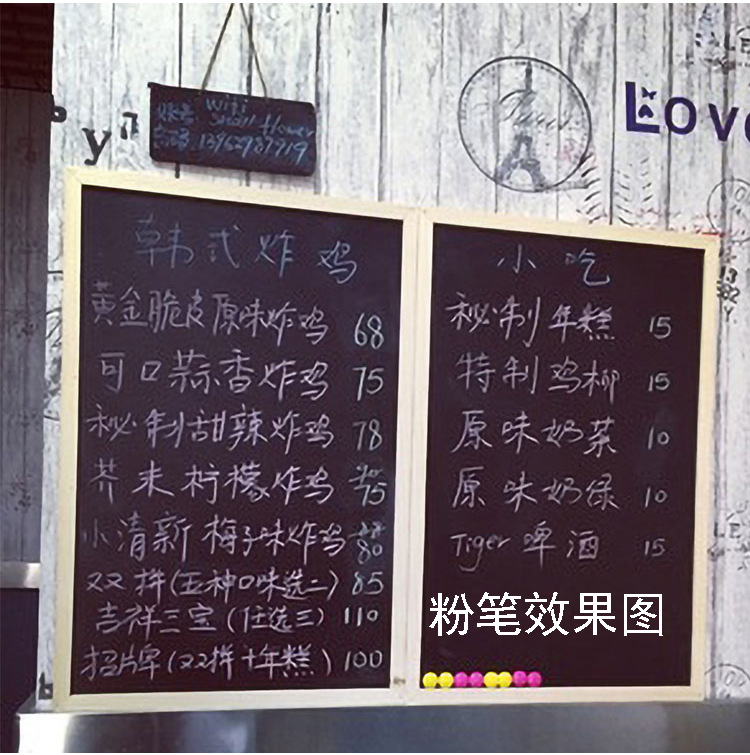 wifi
small flower
密码 13962787719
LOVE
Paris
韩式炸鸡
黄金脆皮原味炸鸡 68
可口蒜香炸鸡 75
秘制甜辣炸鸡 78
芥末柠檬炸鸡 75
小清新梅子味炸鸡 80
双拼(五种口味选二) 85
吉祥三宝(任选三) 110
招牌(双拼+年糕) 100
小吃
秘制年糕 15
特制鸡柳 15
原味奶茶 10
原味奶绿 10
Tiger 啤酒 15
粉笔效果图